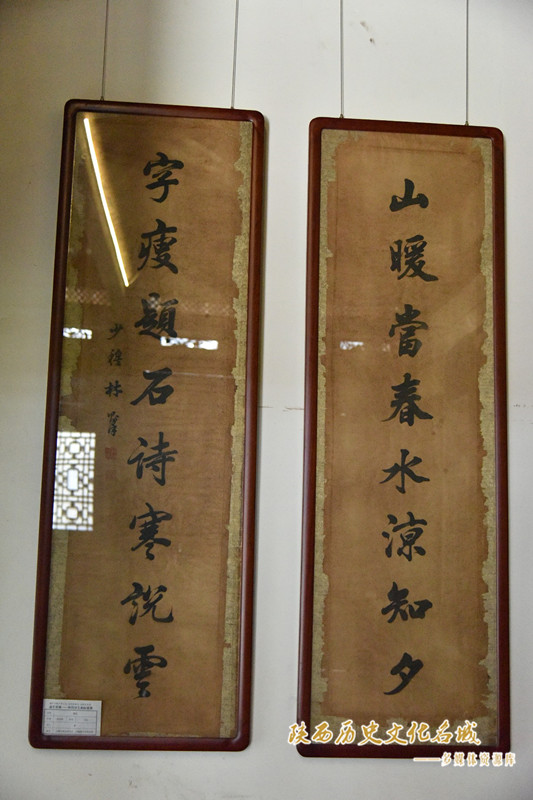 山暖當春水涼知夕
字瘦題石詩寒説雲
少穆林
陕西历史文化名城
——多媒体资源库